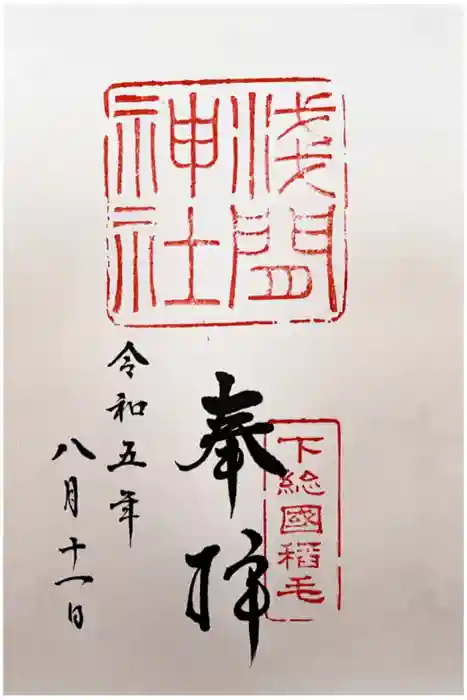 浅間
神社
下総國稻毛
奉拝
令和五年
八月十一日